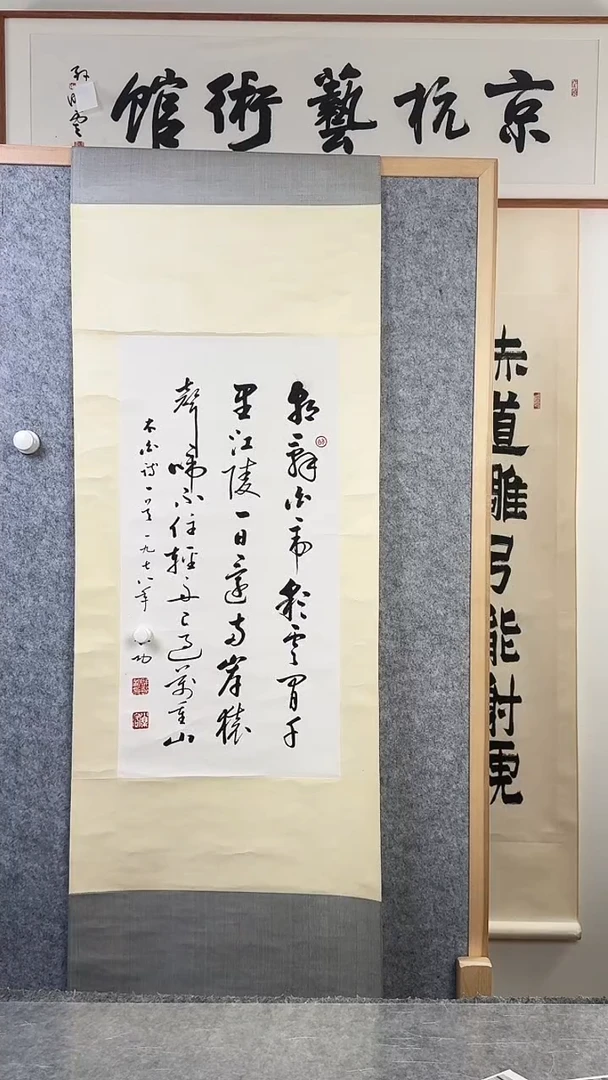 京杭藝術館
朝辭白帝彩雲間千
里江陵一日還兩岸猿
聲啼不住輕舟已過萬重山
白詩一首 一九七八年 功
道雕弓能射